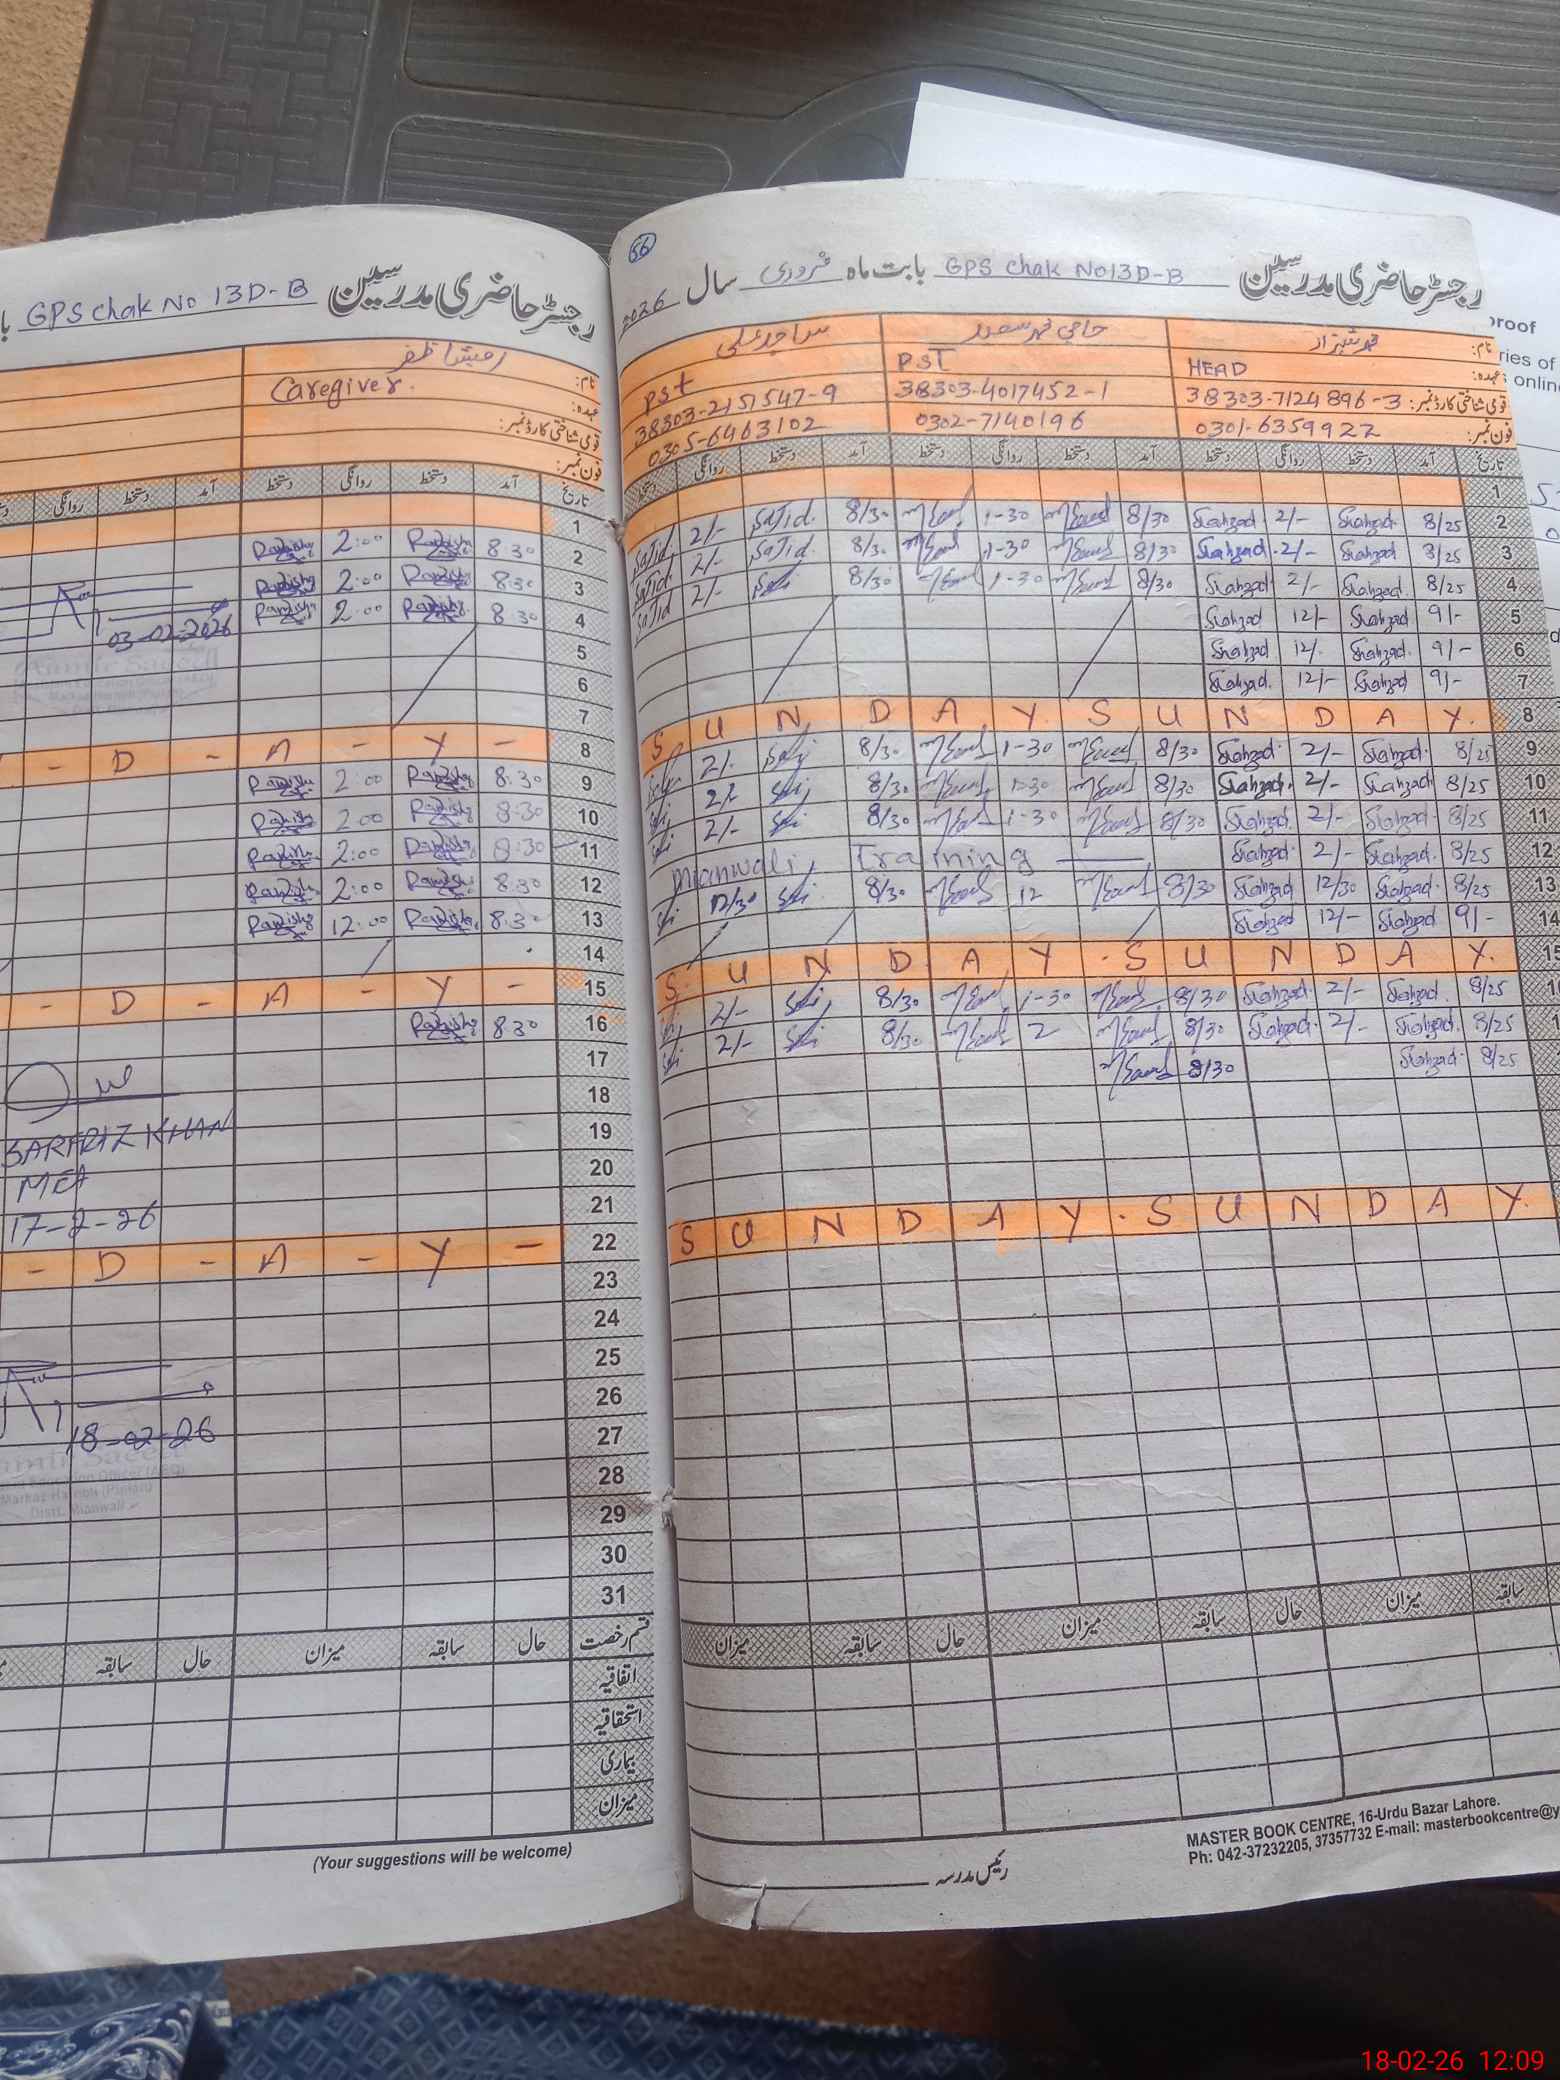 رجسٹر حاضری مدرسین GPS Chak No 13D-B
نام: رمیشا ظفر
عہدہ: Caregiver.
قومی شناختی کارڈ نمبر:
فون نمبر:
تاریخ آمد دستخط روانگی دستخط آمد دستخط روانگی
1
2 8:30 2:00
3 8:30 2:00
4 8:30 2:00
03-02-2026
5
6
7
8 - Y - A - D -
9 8:30 2:00
10 8:30 2:00
11 8:30 2:00
12 8:30 2:00
13 8:30 12:00
14
15 - Y - A - D -
16 8:30
17
18
SARFRAZ KHAN
19
MEA
20
21
17-2-26
22 - Y - A - D -
23
24
25
26
27
18-02-26
28
Markaz Harnoli (Piplan)
Distt. Mianwali
29
30
31
قسم رخصت حال سابقہ میزان حال سابقہ
اتفاقیہ
استحقاقیہ
بیماری
میزان
(Your suggestions will be welcome)
56
رجسٹر حاضری مدرسین GPS Chak No13D-B بابت ماہ فروری سال 2026
نام: محمد شہزاد حاجی محمد سعید ساجد علی
عہدہ: HEAD PST PST
قومی شناختی کارڈ نمبر: 38303-7124896-3 38303-4017452-1 38303-2151547-9
فون نمبر: 0301-6359922 0302-7140196 0305-6463102
تاریخ آمد دستخط روانگی دستخط آمد دستخط روانگی دستخط آمد دستخط روانگی دستخط
1
2 8/25 Shahzad 2/- Shahzad 8/30 M Saeed 1-30 M Saeed 8/30 Sajid 2/- Sajid
3 8/25 Shahzad 2/- Shahzad 8/30 M Saeed 1-30 M Saeed 8/30 Sajid 2/- Sajid
4 8/25 Shahzad 2/- Shahzad 8/30 M Saeed 1-30 M Saeed 8/30 2/- Sajid
5 9/- Shahzad 12/- Shahzad
6 9/- Shahzad 12/- Shahzad
7 9/- Shahzad 12/- Shahzad
8 SUNDAY SUNDAY.
9 8/25 Shahzad 2/- Shahzad 8/30 M Saeed 1-30 M Saeed 8/30 2/-
10 8/25 Shahzad 2/- Shahzad 8/30 M Saeed 1-30 M Saeed 8/30 2/-
11 8/25 Shahzad 2/- Shahzad 8/30 M Saeed 1-30 M Saeed 8/30 2/-
12 8/25 Shahzad 2/- Shahzad Mianwali Training
13 8/25 Shahzad 12/30 Shahzad 8/30 M Saeed 12 M Saeed 8/30 12/30
14 9/- Shahzad 12/- Shahzad
15 SUNDAY . SUNDAY.
8/25 Shahzad 2/- Shahzad 8/30 M Saeed 1-30 M Saeed 8/30 2/-
8/25 Shahzad 2/- Shahzad 8/30 M Saeed 2 M Saeed 8/30 2/-
8/25 Shahzad 8/30 M Saeed
SUNDAY . SUNDAY.
سابقہ میزان حال سابقہ میزان حال سابقہ میزان
رئیس مدرسہ
MASTER BOOK CENTRE, 16-Urdu Bazar Lahore.
Ph: 042-37232205, 37357732 E-mail: masterbookcentre@y
proof
ries of
online
18-02-26 12:09